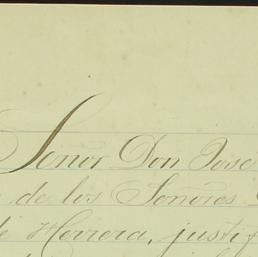 Señor Don Jose
de los Señores
de Herrera, justif